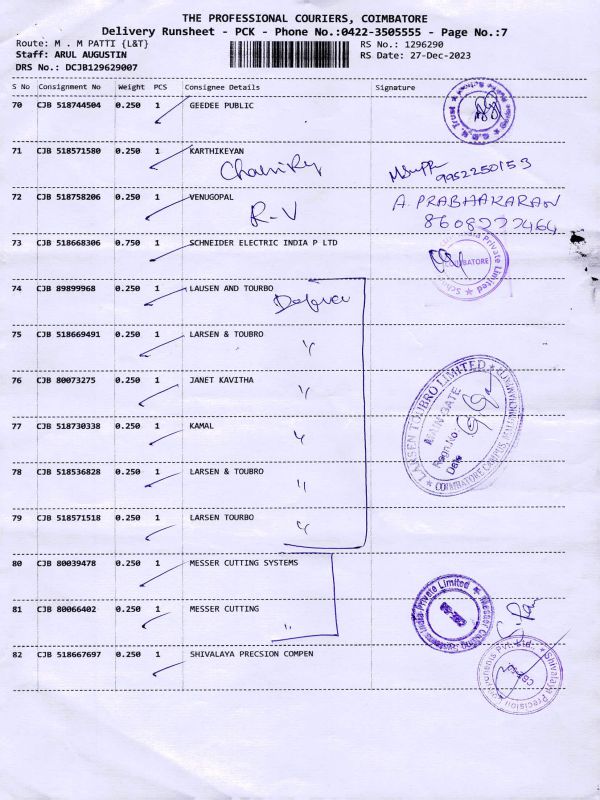 THE PROFESSIONAL COURIERS, COIMBATORE
Delivery Runsheet - PCK - Phone No.:0422-3505555 - Page No.:7
Route: M . M PATTI {L&T} RS No.: 1296290
Staff: ARUL AUGUSTIN RS Date: 27-Dec-2023
DRS No.: DCJB129629007
S No Consignment No Weight PCS Consignee Details Signature
70 CJB 518744504 0.250 1 GEEDEE PUBLIC
71 CJB 518571580 0.250 1 KARTHIKEYAN
9952250153
72 CJB 518758206 0.250 1 VENUGOPAL A. PRABHAKARAN
R-V 8608222464
73 CJB 518668306 0.750 1 SCHNEIDER ELECTRIC INDIA P LTD
COIMBATORE
74 CJB 89899968 0.250 1 LAUSEN AND TOURBO
75 CJB 518669491 0.250 1 LARSEN & TOUBRO
76 CJB 80073275 0.250 1 JANET KAVITHA
LARSEN TOUBRO LIMITED
MAIN GATE
Regn No
COIMBATORE CAMPUS
77 CJB 518730338 0.250 1 KAMAL
78 CJB 518536828 0.250 1 LARSEN & TOUBRO
79 CJB 518571518 0.250 1 LARSEN TOURBO
80 CJB 80039478 0.250 1 MESSER CUTTING SYSTEMS
81 CJB 80066402 0.250 1 MESSER CUTTING
Messer Cutting Systems India Private Limited
82 CJB 518667697 0.250 1 SHIVALAYA PRECSION COMPEN
Shivalaya Precision Components Pvt. Ltd.